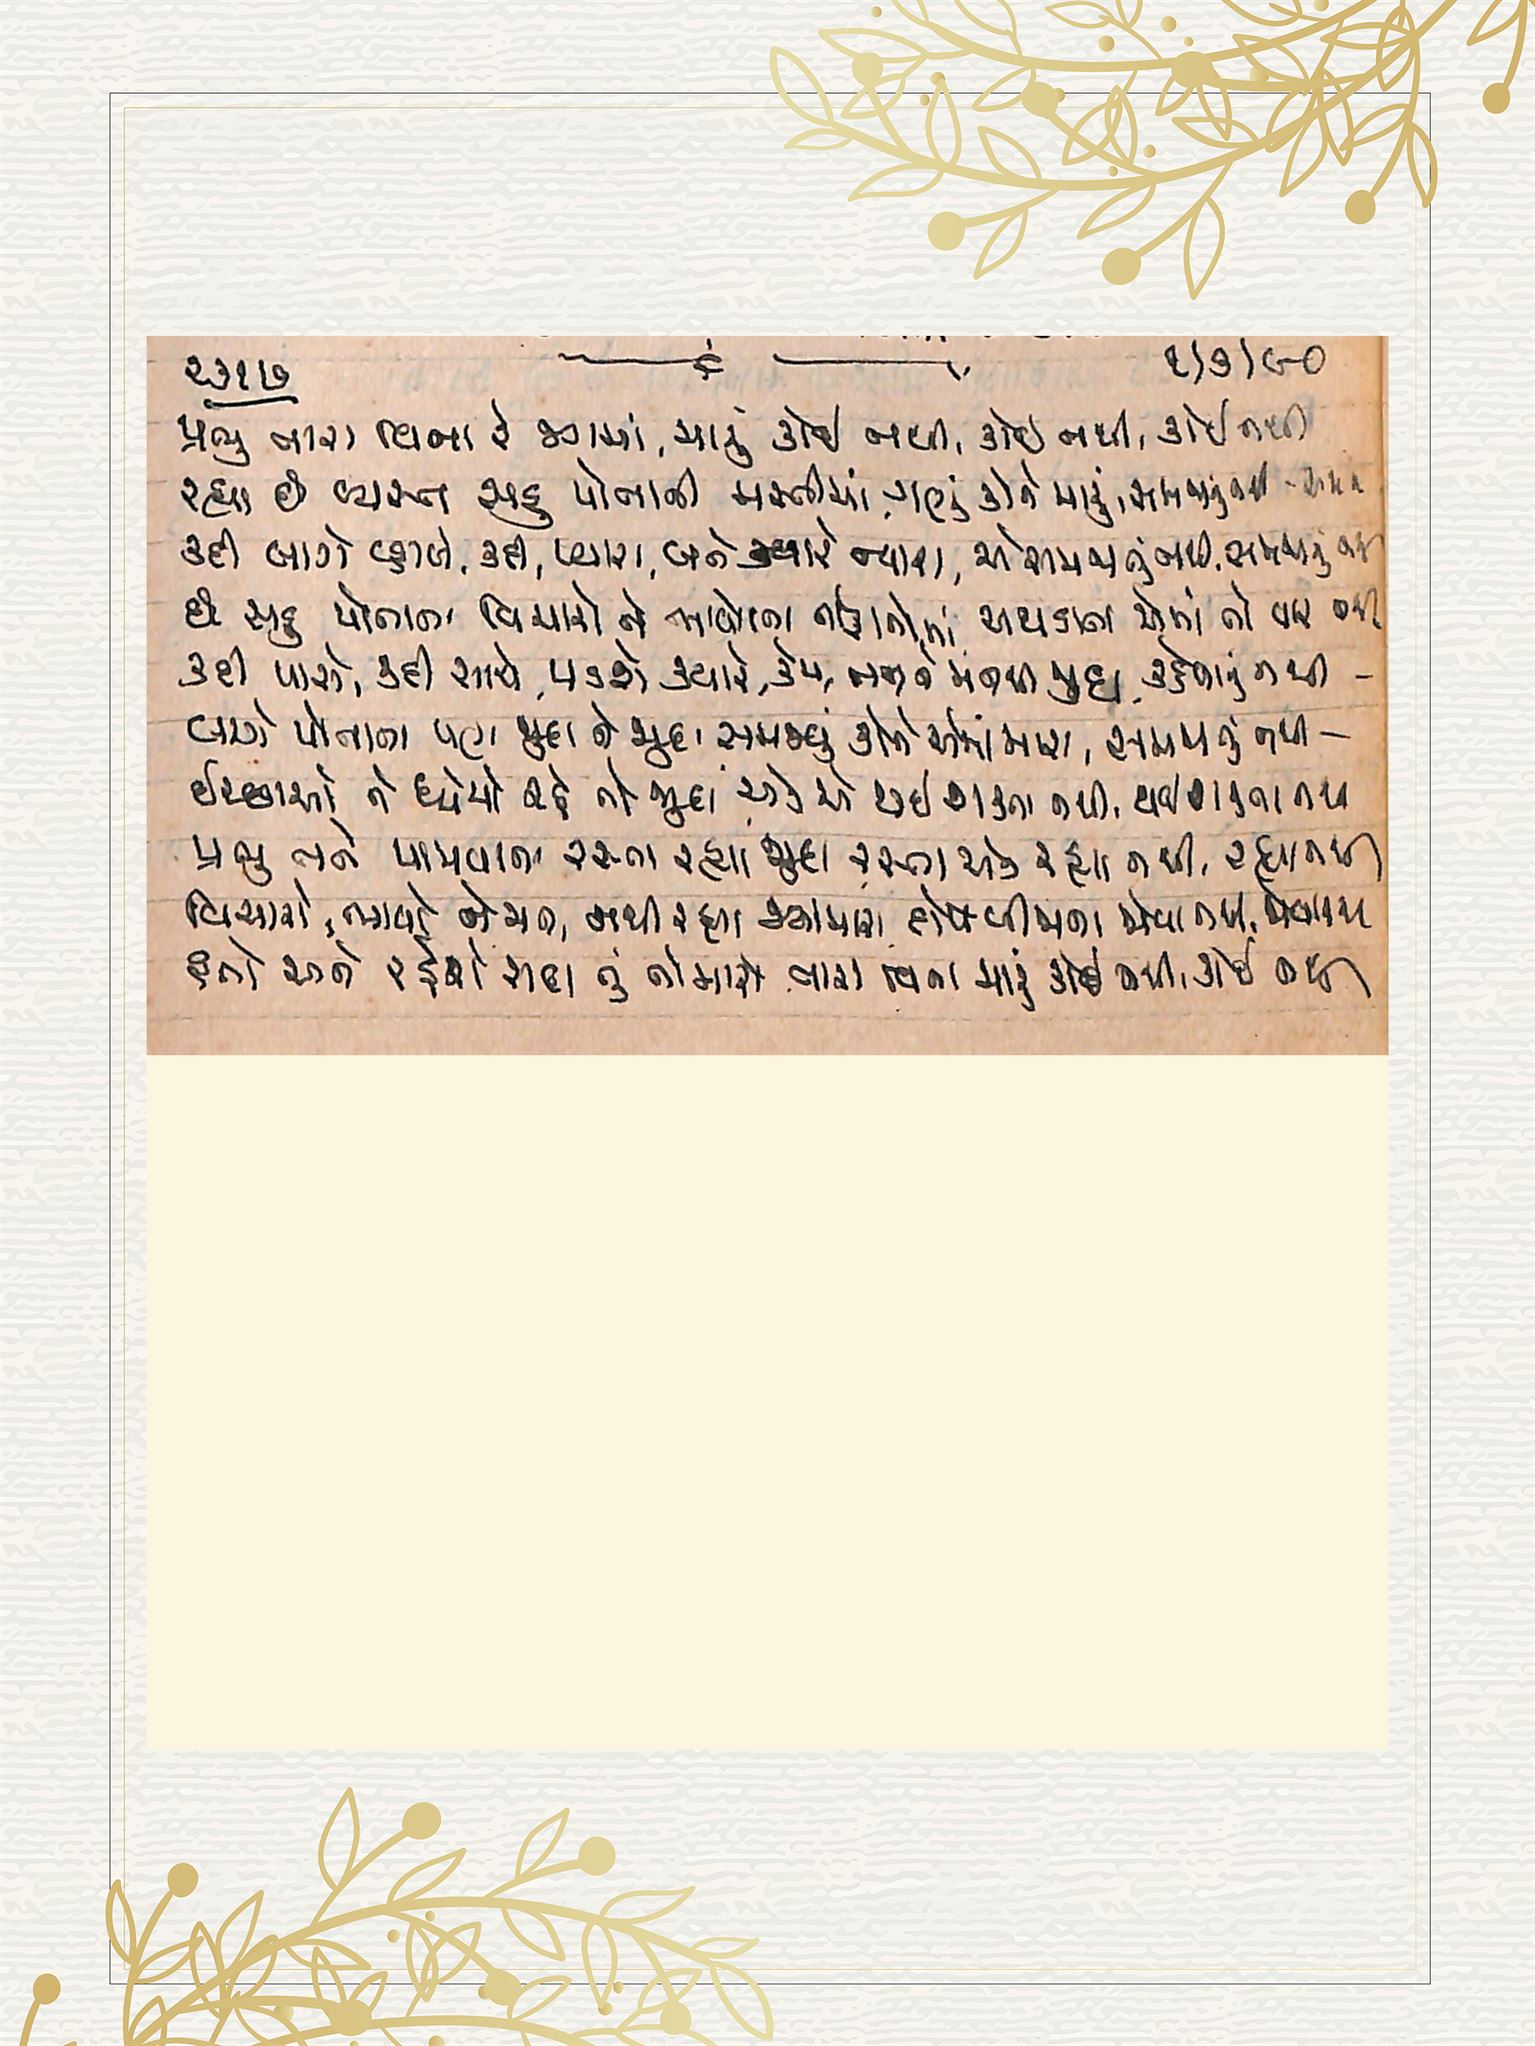 ૨૩૧૭ ૧)૩)૯૦
પ્રભુ તારા વિના રે જગમાં, મારું કોઈ નથી, કોઈ નથી, કોઈ નથી
રહ્યા છે વ્યસ્ત સહુ પોતાની મસ્તીમાં, ગણું કોને મારું, સમજાતું નથી
કદી લાગે કદી, પ્યારા, બને ક્યારે ન્યારા, એ સમજાતું નથી, સમજાતું નથી
છે સહુ પોતાના વિચારો ને ભાવોના અથડાતા એમાં તો વાર નથી
કદી પાસે, કદી સાથે, પડશે ક્યારે, કેમ, જુદા, કહેવાતું નથી –
લાગે પોતાના પણ જુદા ને જુદા સમજવું કોને એમાં મારા, સમજાતું નથી –
ઈચ્છાઓ ને ધ્યેયો રહે તો જુદા, એક એ થઈ શકતા નથી, થઈ શકતા નથી
પ્રભુ તને પામવાના રસ્તા રહ્યા જુદા રસ્તા એક રહ્યા નથી, રહ્યા નથી
વિચારો, ભાવો ને મન, નથી રહ્યા જ્યાં મારા બીજાના એવા નથી,
હતો અને રહેશે સદા તું તો મારો તારા વિના મારું કોઈ નથી, કોઈ નથી